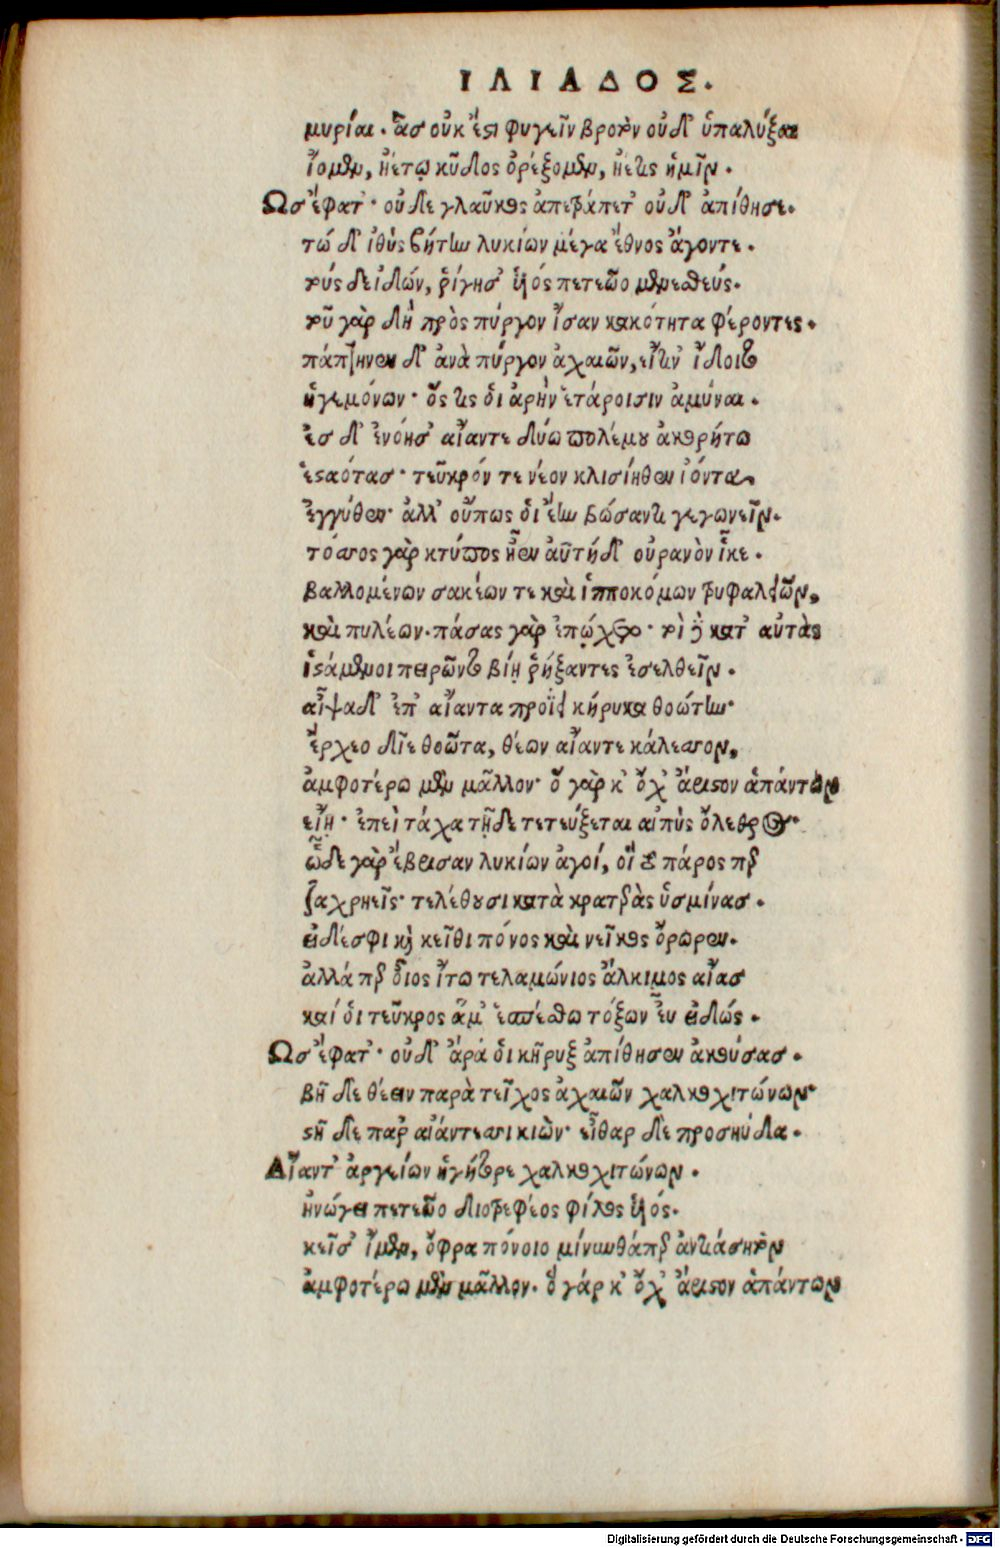 ΙΛΙΑΔΟΣ.
μυρίαι. ἃσ οὐκ ἔστι φυγεῖν βροτὸν οὐδ' ὑπαλύξαι
ἴομεν, ἠέ τῳ κῦδος ὀρέξομεν, ἠέ τις ἡμῖν.
Ωσ ἔφατ'· οὐδὲ γλαῦκος ἀπετράπετ' οὐδ' ἀπίθησε.
τώ δ' ἰθὺς βήτην λυκίων μέγα ἔθνος ἄγοντε.
τούς δὲ ἰδών, ῥίγησ' υἱός πετεῶο μενεσθεύς.
τοῦ γὰρ δὴ πρὸς πύργον ἴσαν κακότητα φέροντες.
πάπτηνεν δ' ἀνὰ πύργον ἀχαιῶν, εἴ τιν' ἴδοιτο
ἡγεμόνων· ὅς τις ὁι ἀρὴν ἑτάροισιν ἀμύναι.
ἐσ δ' ἐνόησ' αἴαντε δύω πολέμου ἀκορήτω
ἑσταότασ· τεῦκρόν τε νέον κλισίηθεν ἰόντα
ἐγγύθεν· ἀλλ' οὔπως ὁι ἔην βώσαντι γεγωνεῖν.
τόσσος γὰρ κτύπος ἦεν ἀϋτή δ' οὐρανὸν ἷκε.
βαλλομένων σακέων τε καὶ ἱπποκόμων τρυφαλειῶν,
καὶ πυλέων. πάσας γὰρ ἐπῴχετο· τοὶ δὲ κατ' αὐτὰς
ἱστάμενοι πειρῶντο βίῃ ῥήξαντες ἐσελθεῖν.
αἶψα δ' ἐπ' αἴαντα προΐει κήρυκα θοώτην·
ἔρχεο δῖε θοῶτα, θέων αἴαντε κάλεσσον,
ἀμφοτέρω μὲν μᾶλλον· ὅ γὰρ κ' ὄχ' ἄριστον ἁπάντων
εἴη· ἐπεὶ τάχα τῇδε τετεύξεται αἰπὺς ὄλεθρος·
ὧδε γὰρ ἔβρισαν λυκίων ἀγοί, οἵ τὸ πάρος περ
ζαχρηεῖς· τελέθουσι κατὰ κρατερὰς ὑσμίνασ.
εἰ δέ σφι καὶ κεῖθι πόνος καὶ νεῖκος ὄρωρεν.
ἀλλά περ δῖος ἴτω τελαμώνιος ἄλκιμος αἴασ
καί ὁι τεῦκρος ἅμ' ἑσπέσθω τόξων ἐῢ εἰδώς.
Ωσ ἔφατ'· οὐδ' ἄρά ὁι κῆρυξ ἀπίθησεν ἀκούσασ.
βῆ δὲ θέειν παρὰ τεῖχος ἀχαιῶν χαλκοχιτώνων·
στῆ δὲ παρ' αἰάντεσσι κιών· εἶθαρ δὲ προσηύδα.
Αἴαντ' ἀργείων ἡγήτορε χαλκοχιτώνων.
ἠνώγει πετεῶο διοτρεφέος φίλος υἱός.
κεῖσ' ἴμεν, ὄφρα πόνοιο μίνυνθά περ ἀντιάσητον
ἀμφοτέρω μὲν μᾶλλον. ὅ γάρ κ' ὄχ' ἄριστον ἁπάντων
Digitalisierung gefördert durch die Deutsche Forschungsgemeinschaft - DFG